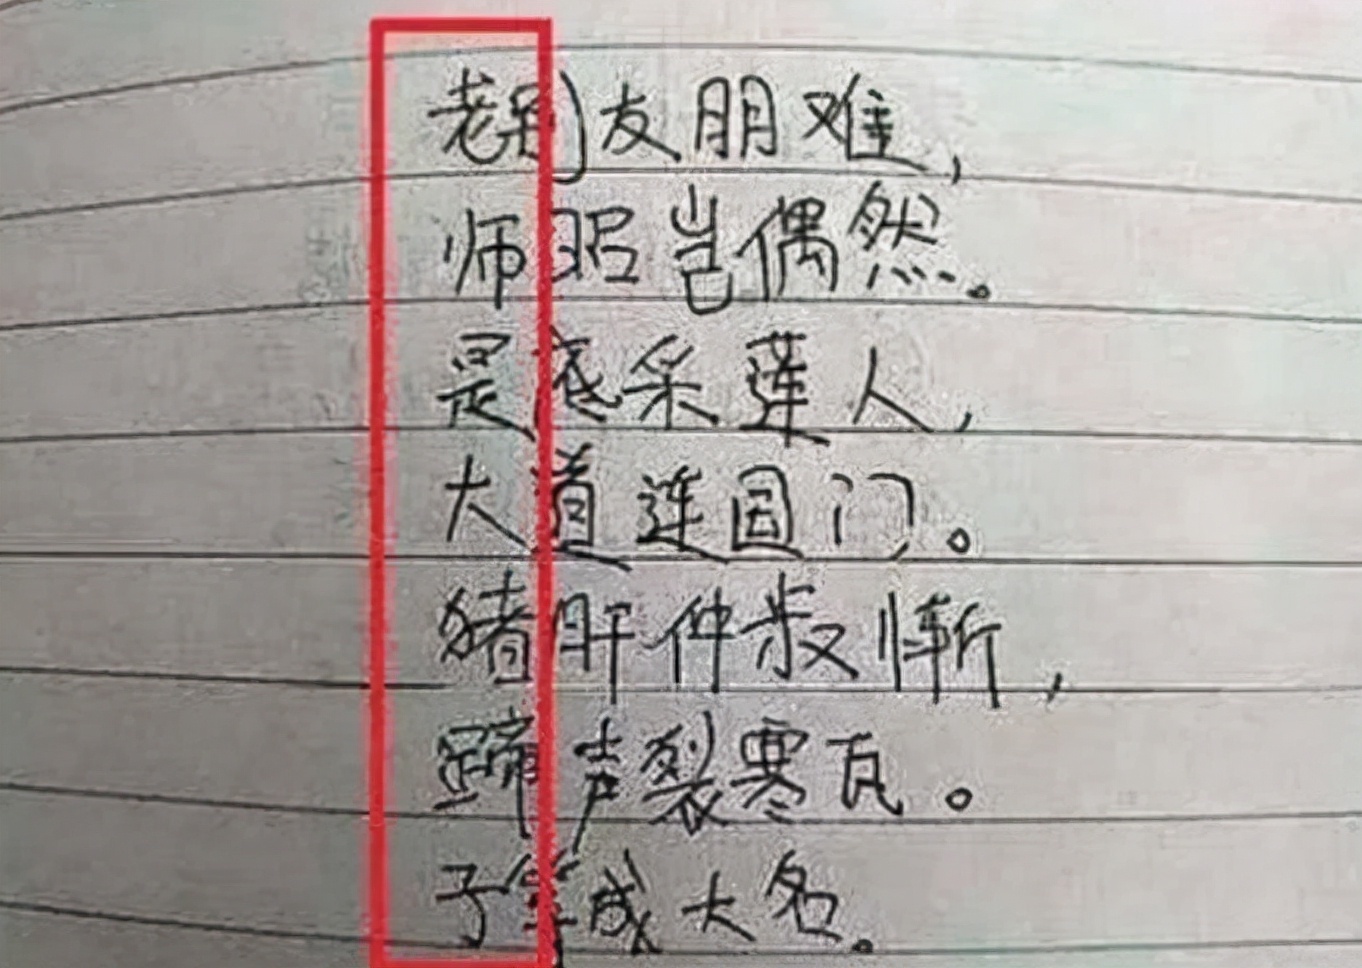 老别友朋难,
师昭岂偶然。
是底采莲人,
大道连国门。
猪肝仲叔惭,
蹄声裂寒瓦。
子等成大名。